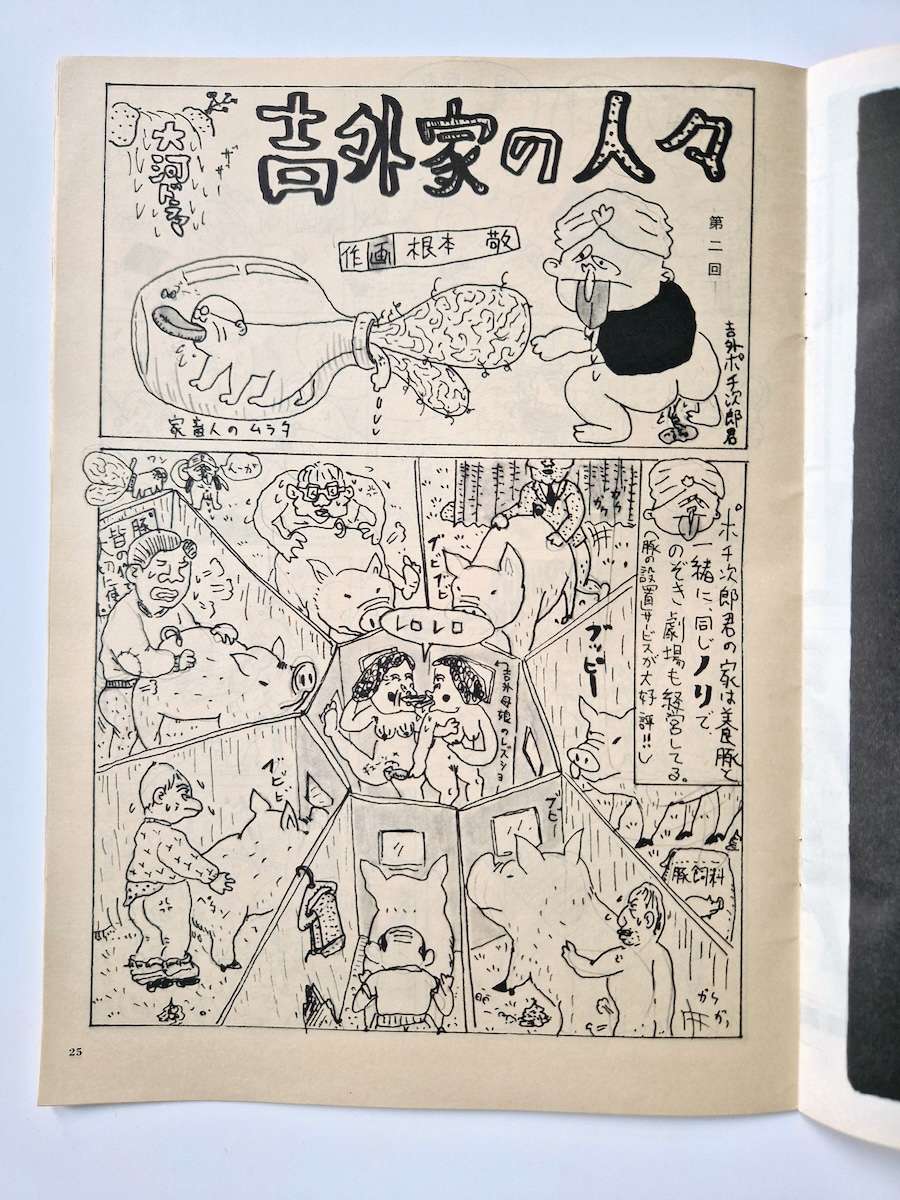 大河ドラマ
ザザー
吉外家の人々
第二回
作画 根本 敬
家畜人のムラタ
吉外ポチ次郎君
ポチ次郎君の家は養豚と
一緒に、同じノリで
のぞき劇場も経営してる。
(豚の設置サービスが大好評!!)
ワン
んーが
ブヒブヒ
レロレロ
ブッピー
ブヒヒ
ブビー
豚飼料